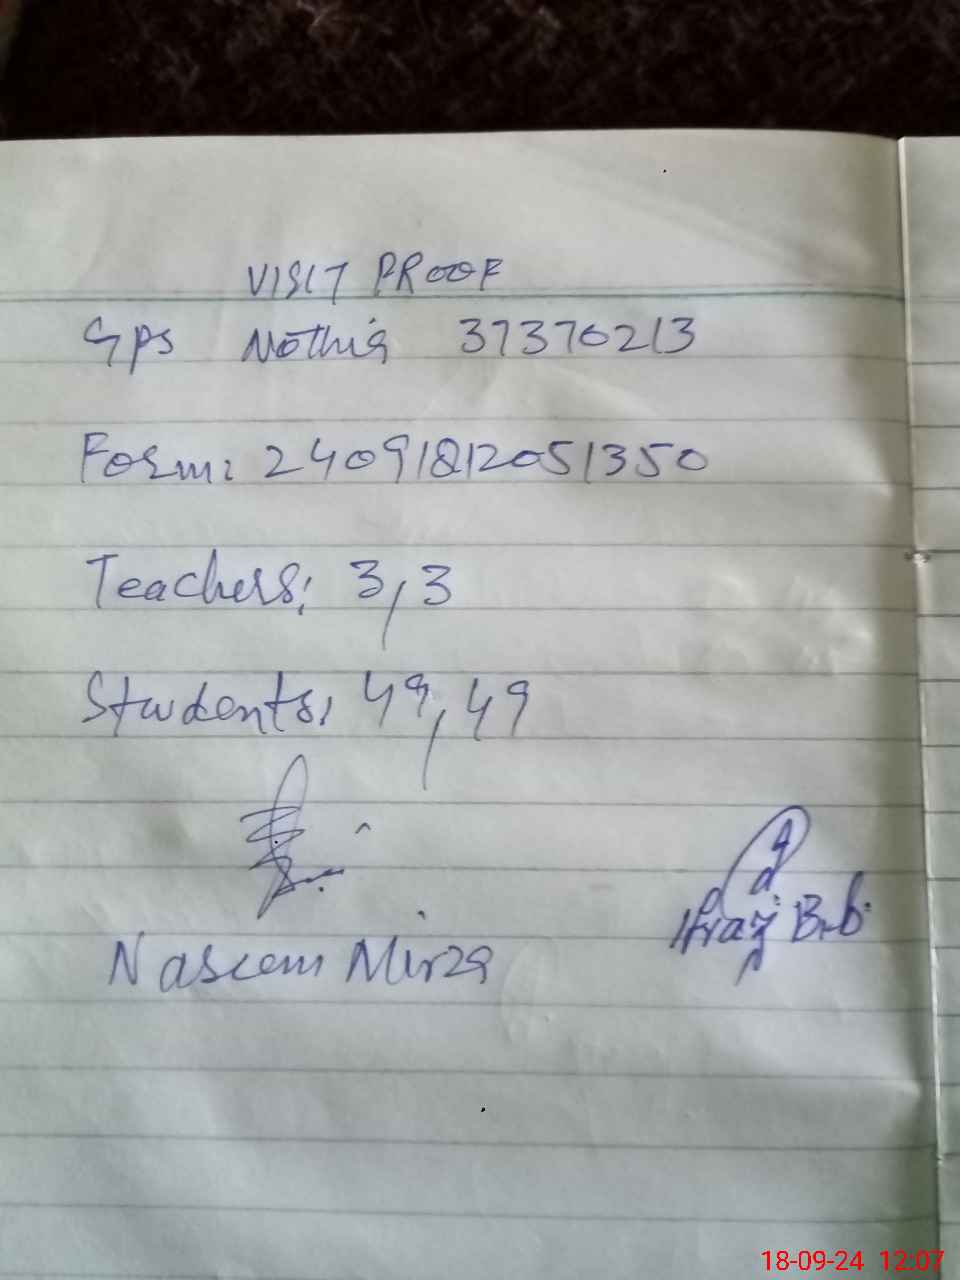 VISIT PROOF
GPS Nothia 37370213
Form: 24091812051350
Teachers: 3,3
Students: 49,49
Naseem Mirza
Bibi
18-09-24 12:07